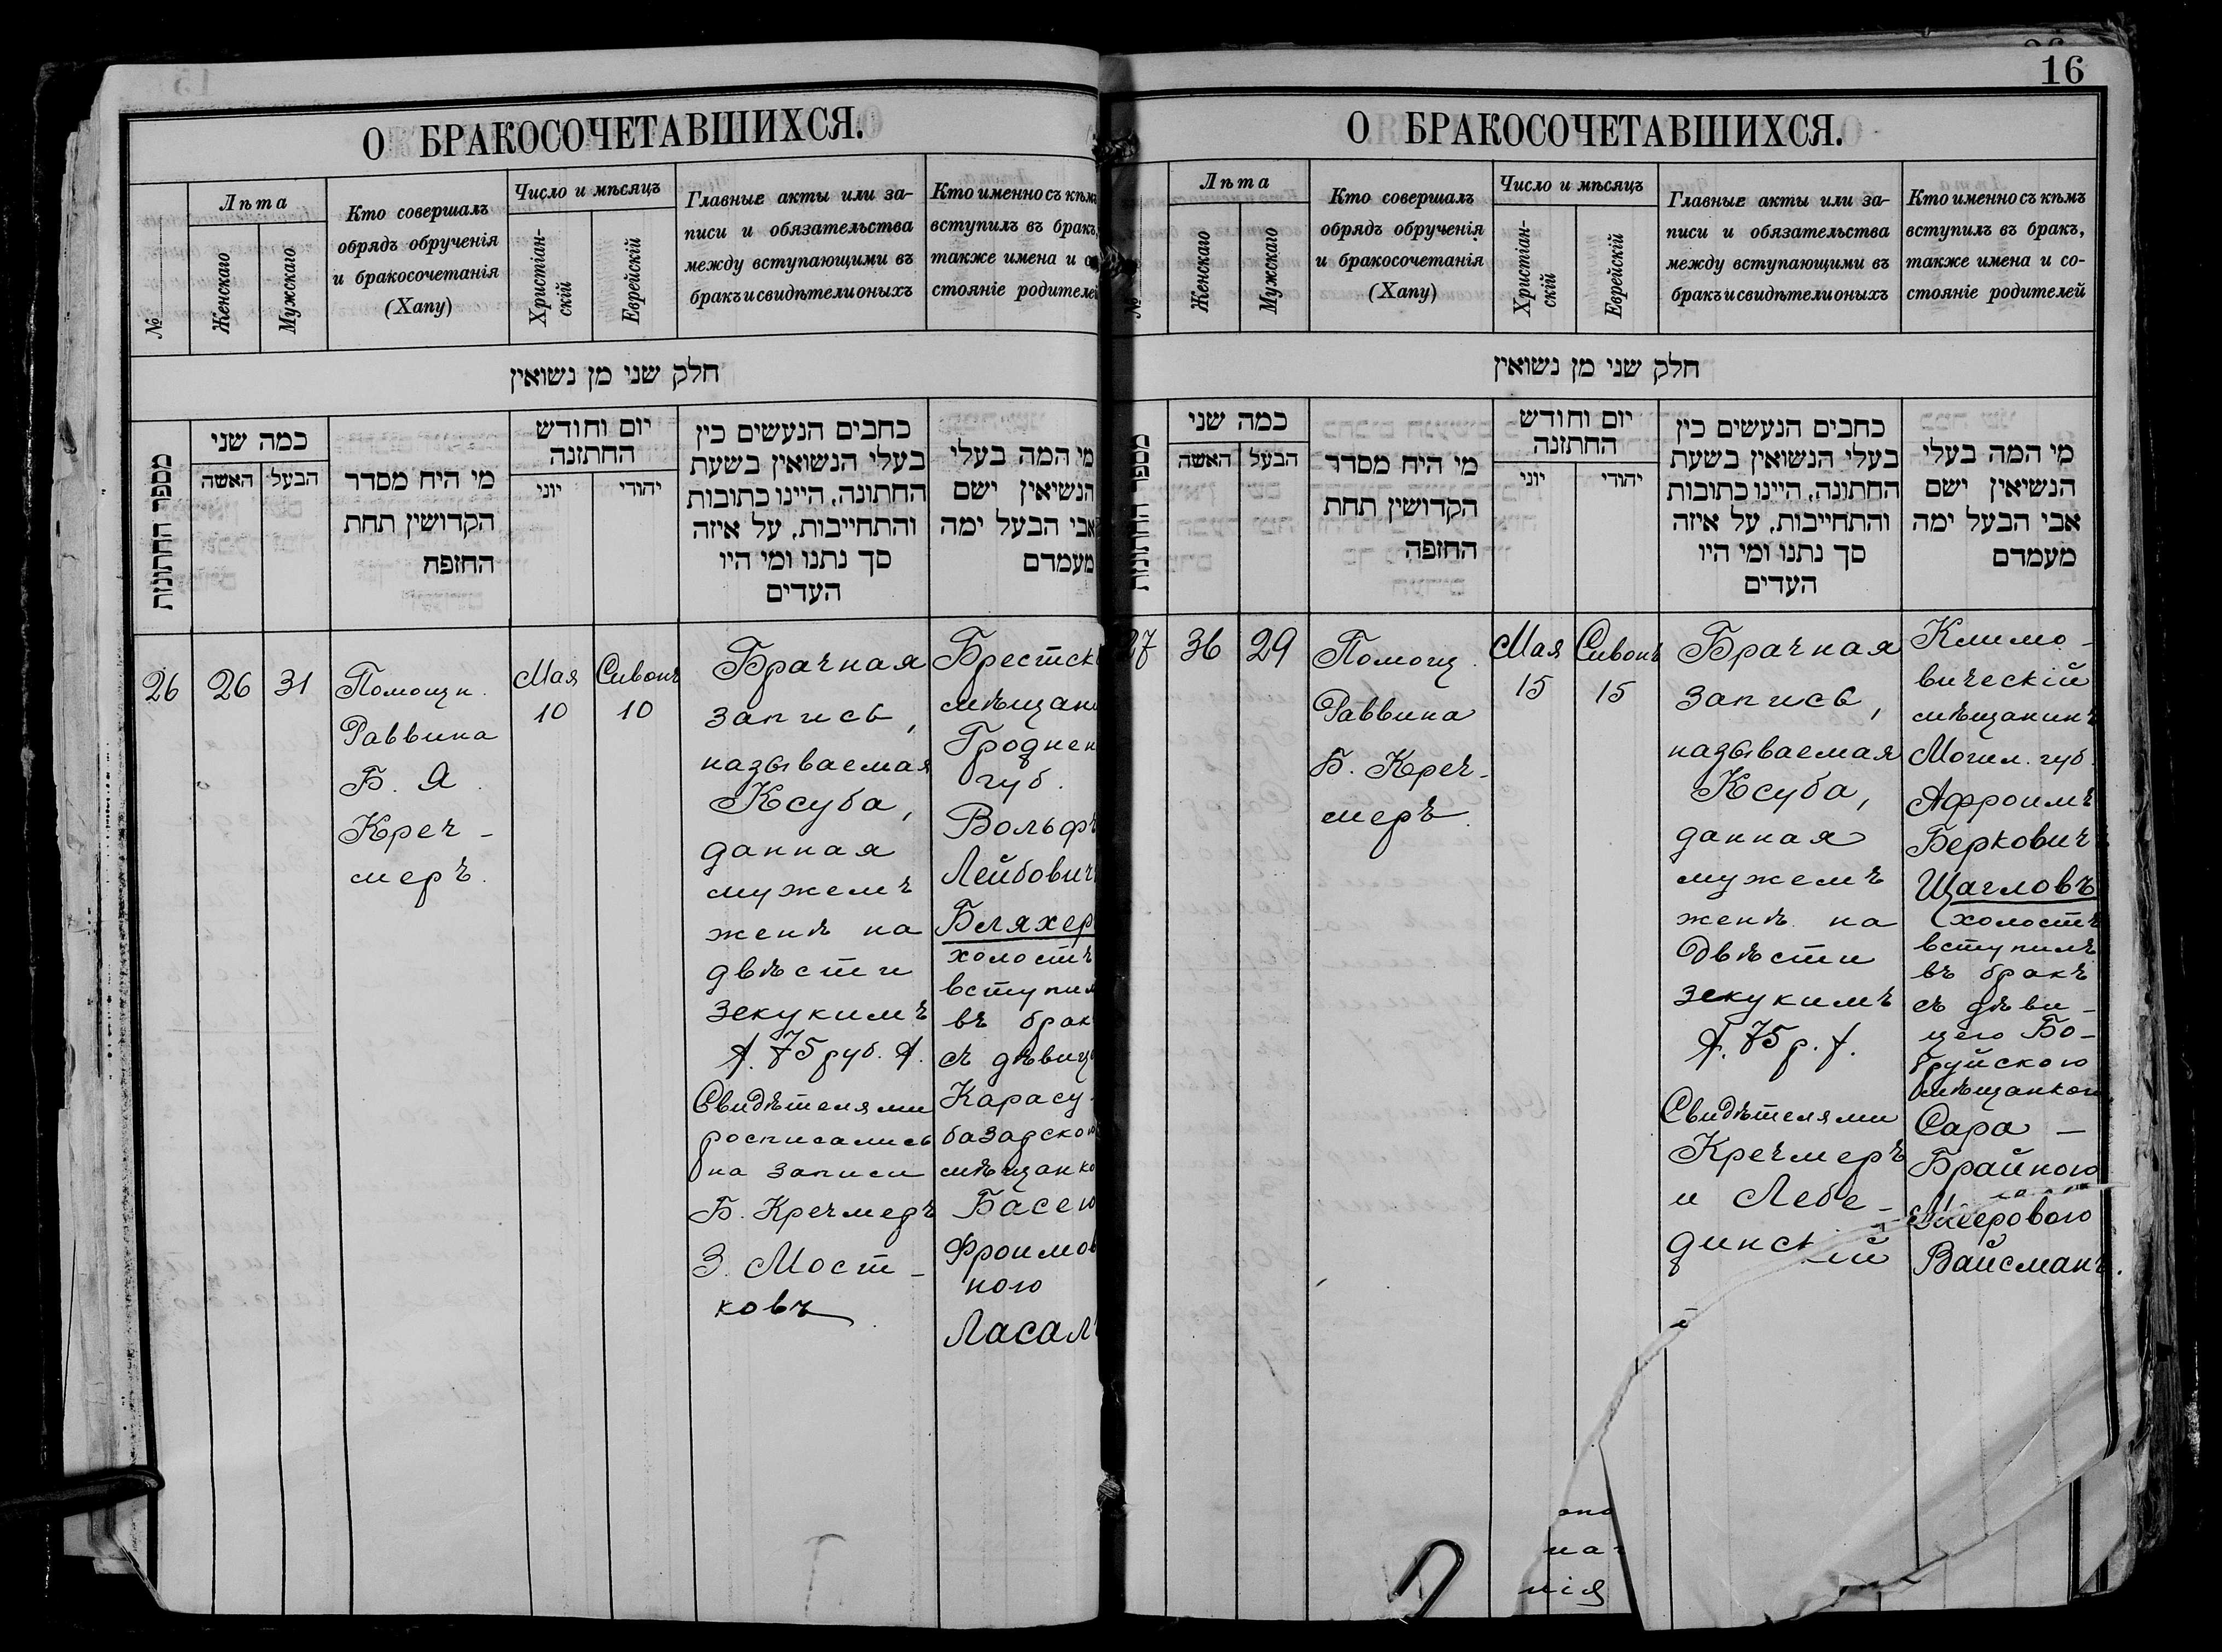 16
О БРАКОСОЧЕТАВШИХСЯ.
№
Лѣта
Женскаго
Мужскаго
Кто совершалъ
обрядъ обрученія
и бракосочетанія
(Хапу)
Число и мѣсяцъ
Христіан-
скій
Еврейскій
Главные акты или за-
писи и обязательства
между вступающими въ
бракъ и свидѣтели оныхъ
Кто именно съ кѣмъ
вступилъ въ бракъ,
также имена и со
стояніе родителей
חלק שני מן נשואין
מספר החתונות
כמה שני
האשה
הבעל
מי היח מסדר
הקדושין תחת
החופה
יום וחודש
החתונה
יוני
יהודי
כתבים הנעשים כין
בעלי הנשואין בשעת
החתונה, היינו כתובות
והתחייבות, על איזה
סך נתנו ומי היו
העדים
מי המה בעלי
הנשיאין ישם
אבי הבעל ימה
מעמדם
26
26
31
Помощн.
Раввина
Б. Я.
Креч-
меръ.
Мая
10
Сивонъ
10
Брачная
запись,
называемая
Ксуба,
данная
мужемъ
женѣ на
двѣсти
зекукимъ
/. 75 руб. /.
Свидѣтелями
росписались
на записи
Б. Кречмеръ
З. Мост-
ковъ
Брестск
мѣщани
Гроднен
губ.
Вольфъ
Лейбович
Бляхер
холостъ
вступил
въ брак
съ дѣвиц
Карасу
базарскою
мѣщанко
Басею
Фроимов
ною
Ласал
О БРАКОСОЧЕТАВШИХСЯ.
№
Лѣта
Женскаго
Мужскаго
Кто совершалъ
обрядъ обрученія
и бракосочетанія
(Хапу)
Число и мѣсяцъ
Христіан-
скій
Еврейскій
Главные акты или за-
писи и обязательства
между вступающими въ
бракъ и свидѣтели оныхъ
Кто именно съ кѣмъ
вступилъ въ бракъ,
также имена и со-
стояніе родителей
חלק שני מן נשואין
מספר החתונות
כמה שני
האשה
הבעל
מי היח מסדר
הקדושין תחת
החופה
יום וחודש
החתונה
יוני
יהודי
כתבים הנעשים כין
בעלי הנשואין בשעת
החתונה, היינו כתובות
והתחייבות, על איזה
סך נתנו ומי היו
העדים
מי המה בעלי
הנשיאין ישם
אבי הבעל ימה
מעמדם
27
36
29
Помощ.
Раввина
Б. Креч-
меръ.
Мая
15
Сивонъ
15
Брачная
запись,
называемая
Ксуба,
данная
мужемъ
женѣ на
двѣсти
зекукимъ
/. 75 р. /.
Свидѣтелями
Кречмеръ
и Лебе-
динскій
Климо-
вическій
мѣщанинъ
Могил. губ.
Афроимъ
Берковичъ
Щагловъ
(холостъ
вступилъ
въ бракъ
съ дѣви-
цею Бо-
бруйскою
мѣщанкою
Сара-
Брайною
Мееровою
Вайсманъ.
нія